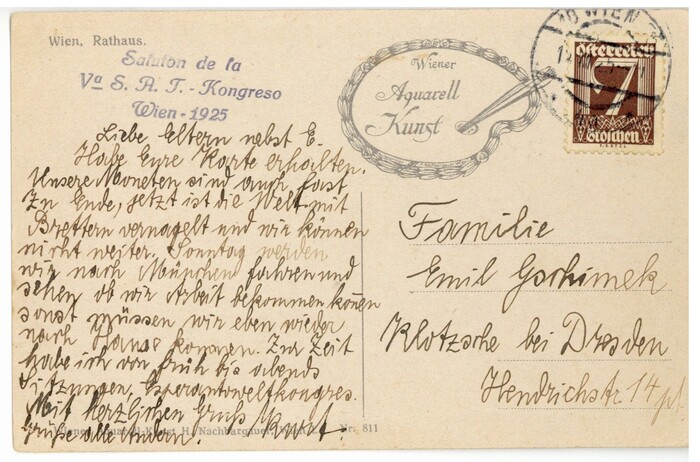 Wien, Rathaus.
Saluton de la
Va S. A. T. - Kongreso
Wien - 1925
Wiener
Aquarell
Kunst
10 WIEN
Österreich
7
Groschen
Liebe Eltern nebst E.
Habe Eure Karte erhalten.
Unsere Moneten sind auch fast
zu Ende, jetzt ist die Welt mit
Brettern vernagelt und wir können
nicht weiter. Sonntag werden
wir nach München fahren und
sehen ob wir Arbeit bekommen können
sonst müssen wir eben wieder
nach Hause kommen. Zur Zeit
habe ich von früh bis abends
Sitzungen, Esperantoweltkongres.
Mit herzlichen Gruß Kurt.
Grüße alle Andern!
Familie
Emil Gschimek
Klotzsche bei Dresden
Hendrichstr. 14 pt.
Wiener Aquarell-Kunst H. Nachbargauer, Nr. 811